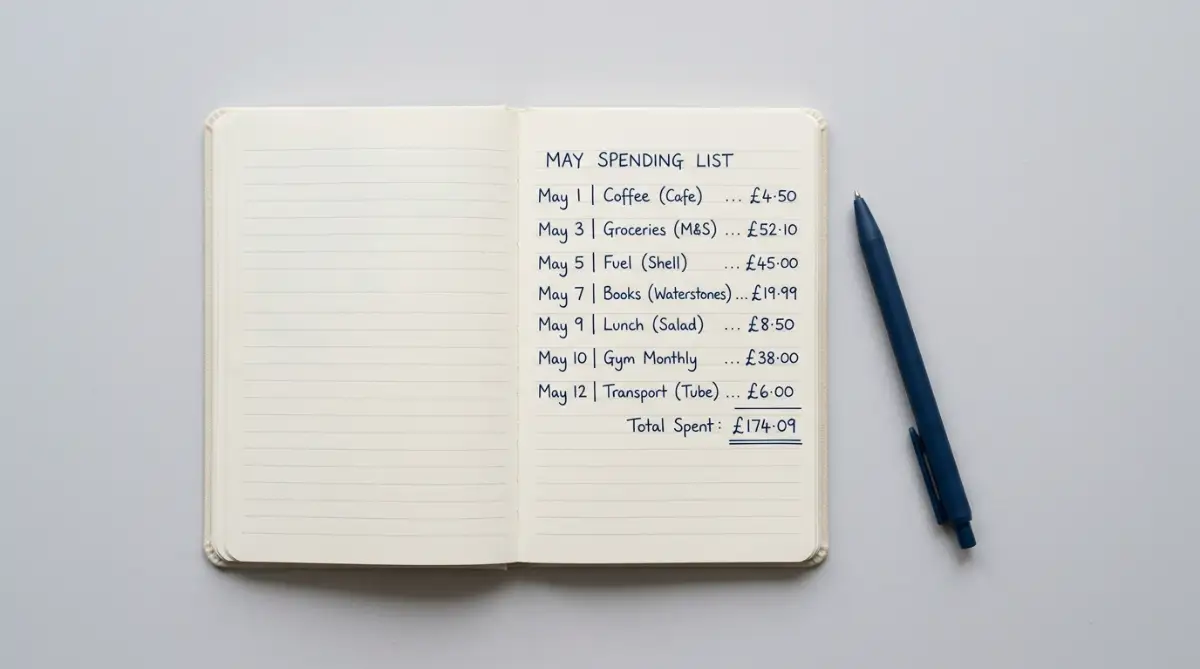 MAY SPENDING LIST
May 1 | Coffee (Cafe) ... £4·50
May 3 | Groceries (M&S) ... £52·10
May 5 | Fuel (Shell) ... £45·00
May 7 | Books (Waterstones) ... £19·99
May 9 | Lunch (Salad) ... £8·50
May 10 | Gym Monthly ... £38·00
May 12 | Transport (Tube) ... £6·00
Total Spent: £174·09